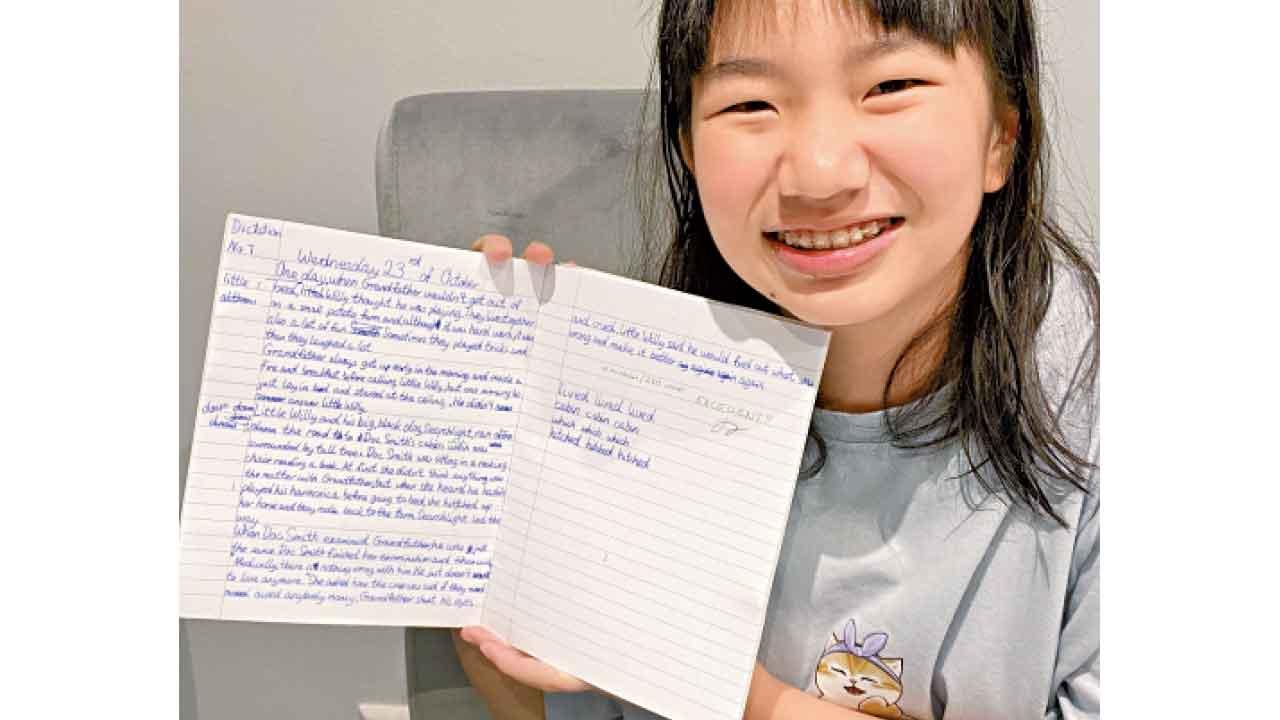 Dictation
No. 7
Wednesday 23rd of October
One day, when Grandfather wouldn't get out of
little
bed, little Willy thought he was playing. They went together
although
on a small potato farm and although it was hard work, it was
also a lot of fun. Sometimes they played tricks and
then they laughed a lot.
Grandfather always got up early in the morning and made a
fire and breakfast before calling little Willy, but one morning he
just lay in bed and stared at the ceiling. He didn't
answer little Willy.
down down
Little Willy and his big, black dog, Searchlight, ran
down
down the road to Doc Smith's cabin which was
surrounded by tall trees. Doc Smith was sitting in a rocking
chair reading a book. At first she didn't think anything was
the matter with Grandfather, but when she heard he hadn't
played his harmonica before going to bed, she hitched up
her horse and they rode back to the farm. Searchlight led the
way.
When Doc Smith examined Grandfather, he was just
the same. Doc Smith finished her examination and
Medically, there is nothing wrong with him. He just doesn't want
to live anymore. She asked how the crop was and if they
owed anybody money. Grandfather shut his eyes
and cried. Little Willy said he would find out what was
wrong and make it better again.
EXCELLENT!!
lived lived lived
cabin cabin cabin
which which which
hitched hitched hitched